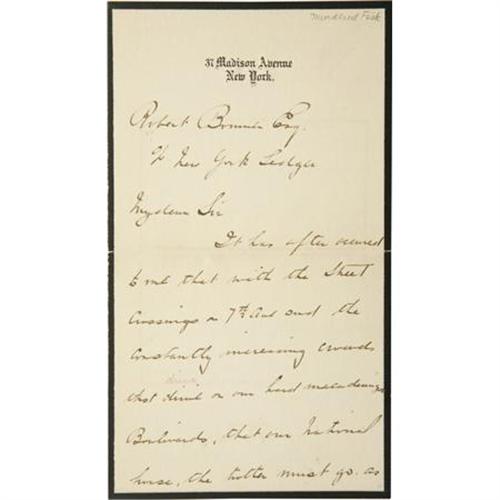 37 Madison Avenue
New York.
Robert Bonner Esq.
% New York Ledger
My dear Sir
It has often occured
to me that with the Street
crossings on 7th Ave and the
constantly increasing crowds
that drive on our hard macadamized
Boulevards, that our National
horse, the trotter must go. as